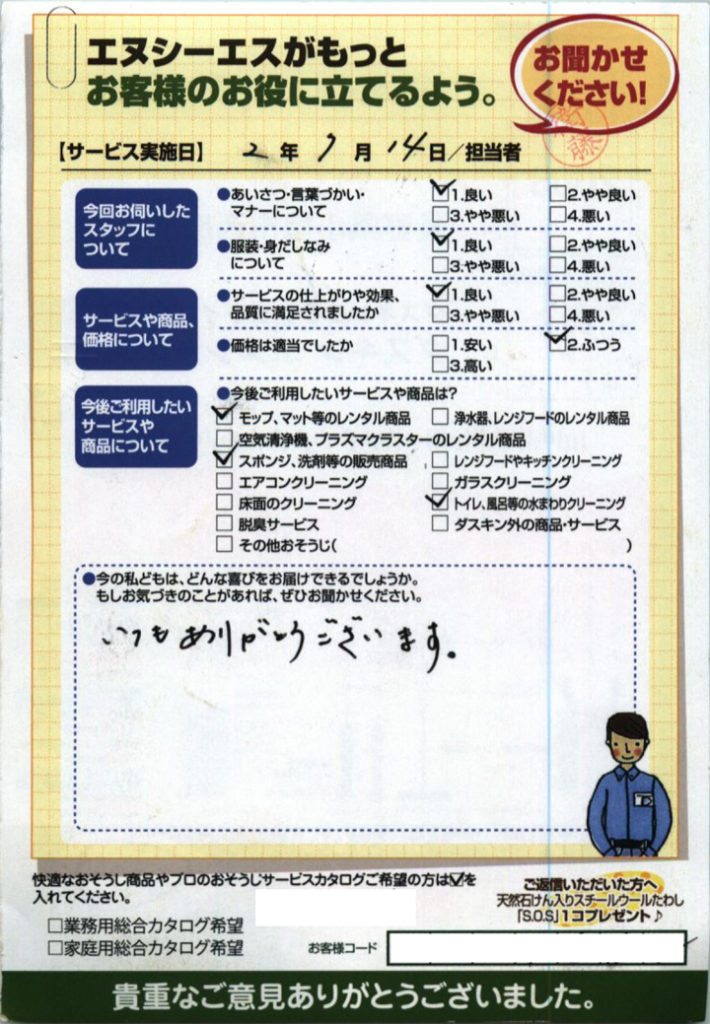 エヌシーエスがもっと
お客様のお役に立てるよう。
お聞かせ
ください!
【サービス実施日】 2 年 7 月 14 日/担当者
今回お伺いした
スタッフに
ついて
●あいさつ・言葉づかい・
マナーについて
☑1.良い □2.やや良い
□3.やや悪い □4.悪い
●服装・身だしなみ
について
☑1.良い □2.やや良い
□3.やや悪い □4.悪い
サービスや商品、
価格について
●サービスの仕上がりや効果、
品質に満足されましたか
☑1.良い □2.やや良い
□3.やや悪い □4.悪い
●価格は適当でしたか
□1.安い ☑2.ふつう
□3.高い
今後ご利用したい
サービスや
商品について
●今後ご利用したいサービスや商品は?
☑モップ、マット等のレンタル商品 □浄水器、レンジフードのレンタル商品
□空気清浄機、プラズマクラスターのレンタル商品
☑スポンジ、洗剤等の販売商品 □レンジフードやキッチンクリーニング
□エアコンクリーニング □ガラスクリーニング
□床面のクリーニング ☑トイレ、風呂等の水まわりクリーニング
□脱臭サービス □ダスキン外の商品・サービス
□その他おそうじ( )
●今の私どもは、どんな喜びをお届けできるでしょうか。
もしお気づきのことがあれば、ぜひお聞かせください。
いつもありがとうございます。
快適なおそうじ商品やプロのおそうじサービスカタログご希望の方は☑を
入れてください。
□業務用総合カタログ希望
□家庭用総合カタログ希望
お客様コード
ご返信いただいた方へ
天然石けん入りスチールウールたわし
「S.O.S」1コプレゼント♪
貴重なご意見ありがとうございました。